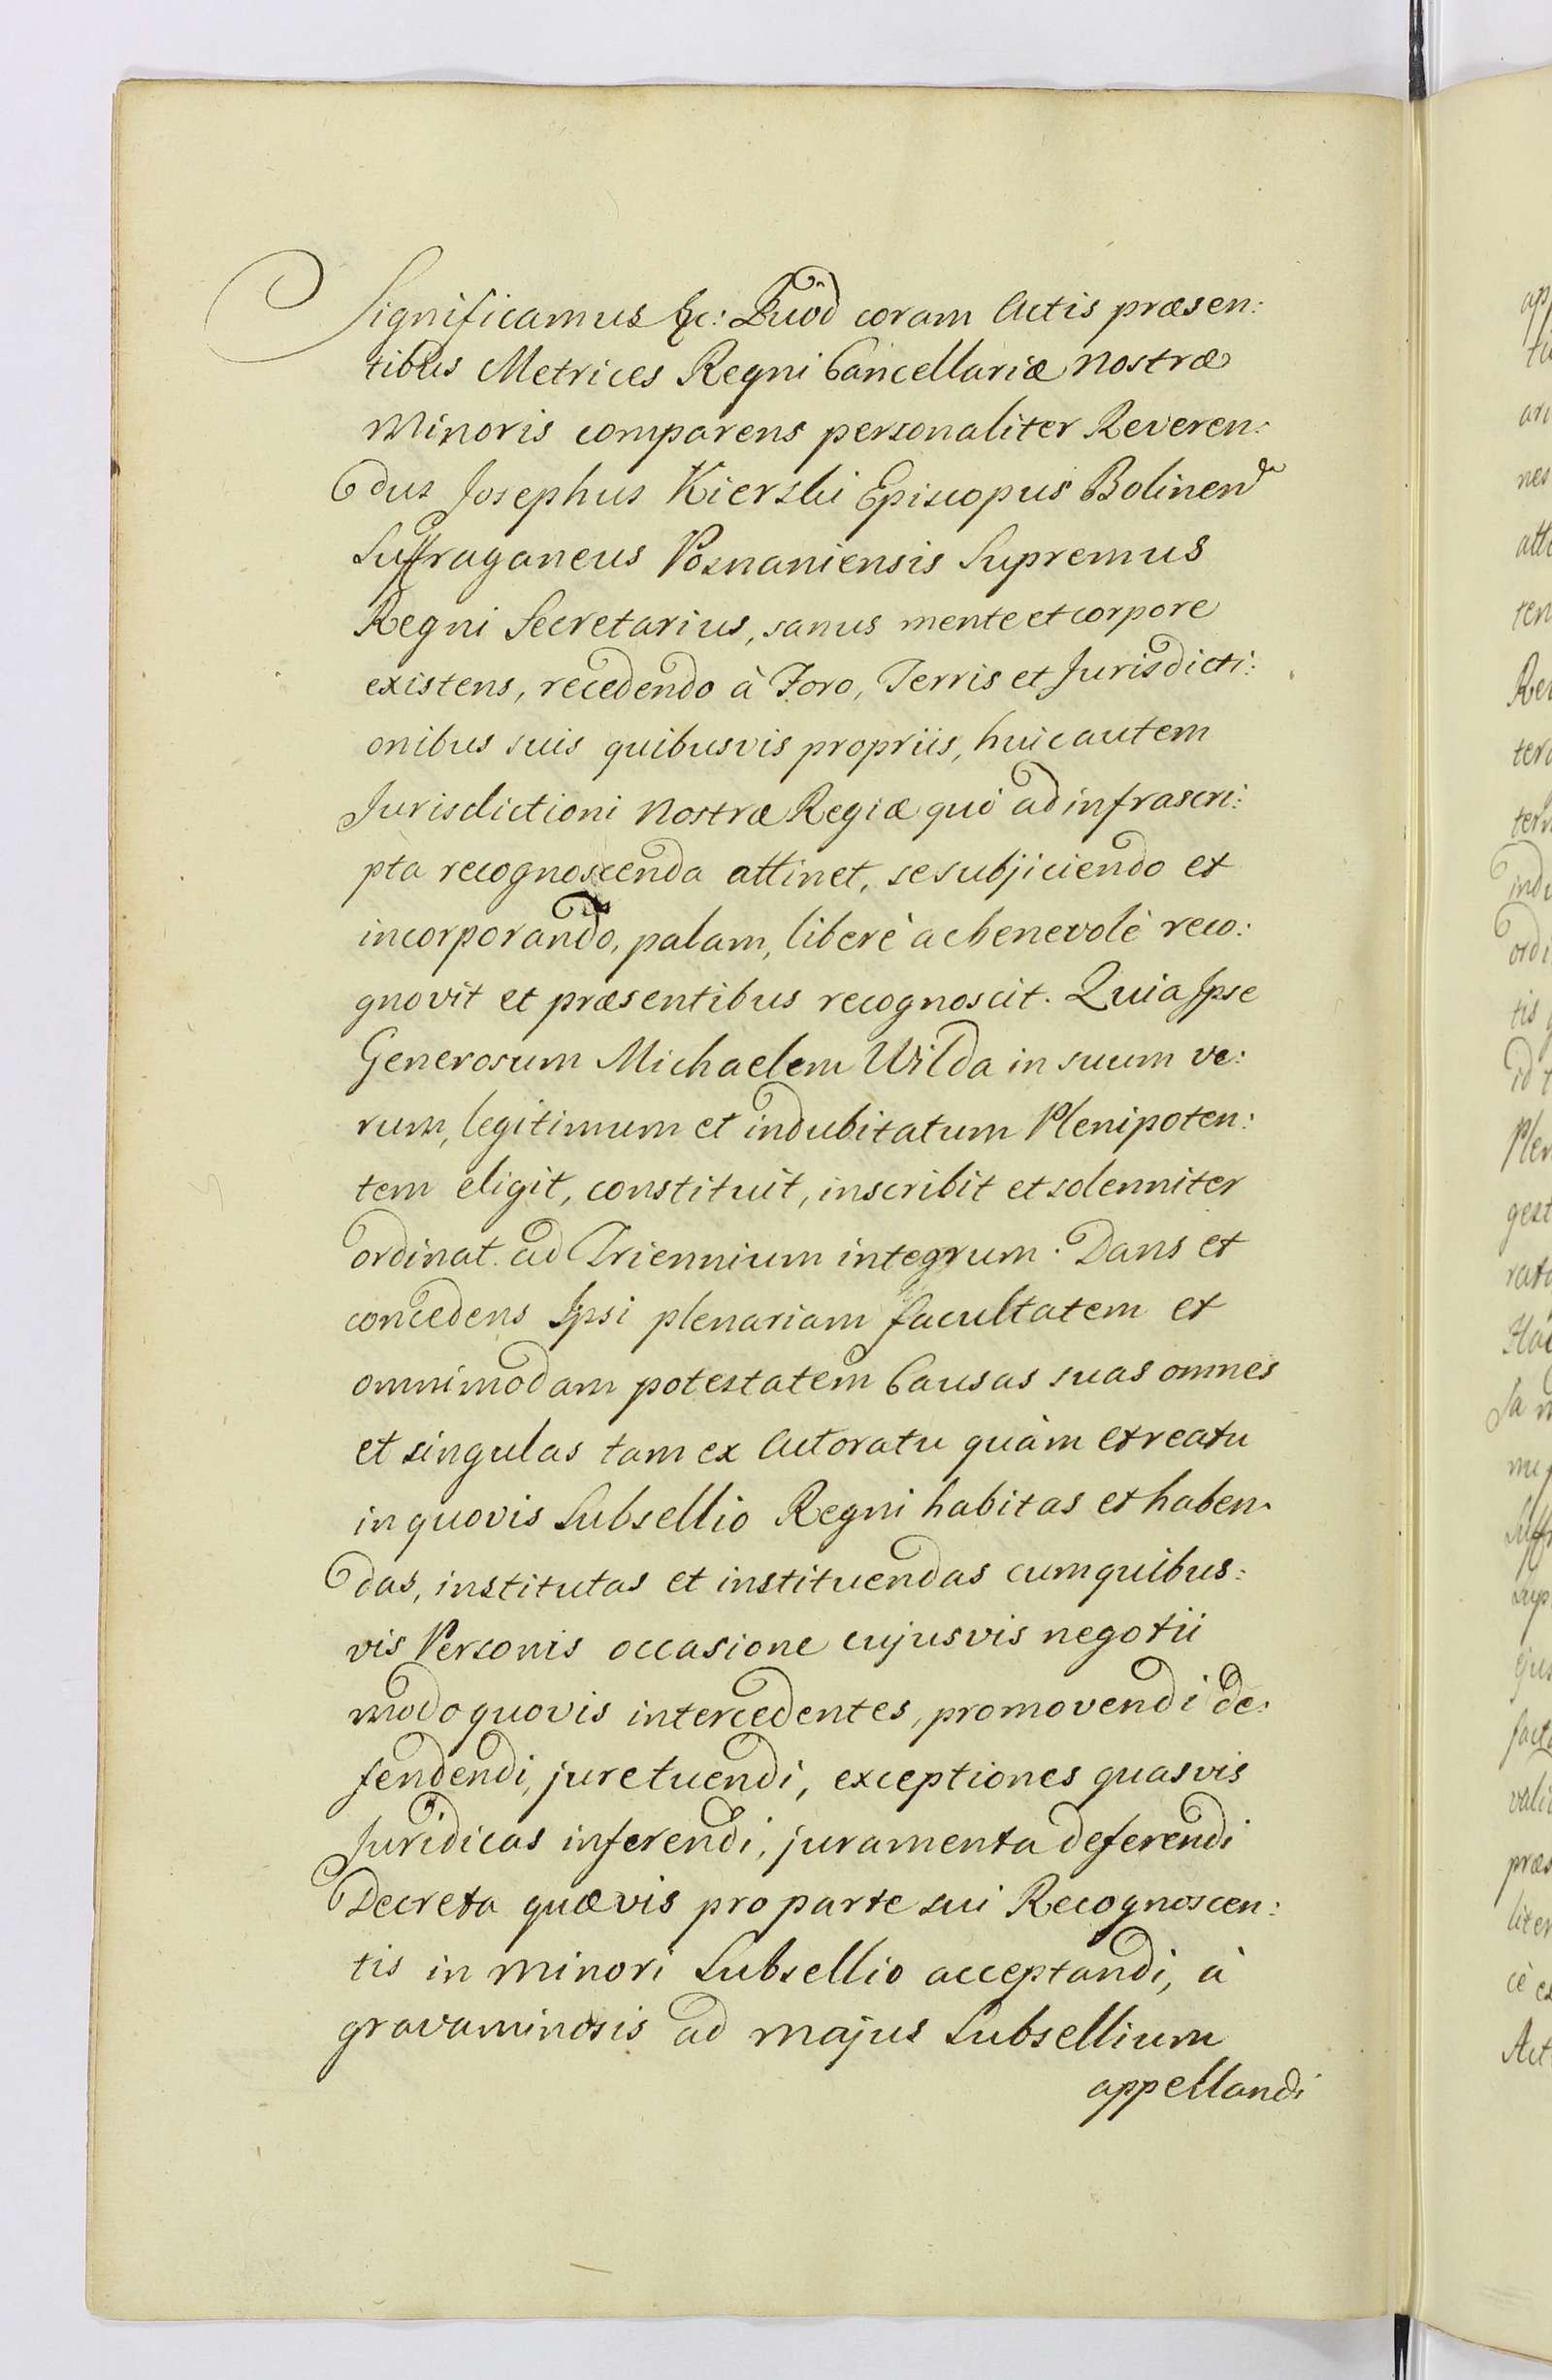 Significamus &c: Quod coram Actis præsen:
tibus Metrices Regni Cancellariæ Nostræ
Minoris comparens personaliter Reveren:
dus Josephus Kierski Episcopus Bolinen
Suffraganeus Posnaniensis Supremus
Regni Secretarius, sanus mente et corpore
existens, recedendo à Foro, Terris et Jurisdicti:
onibus suis quibusvis propriis, huic autem
Jurisdictioni Nostræ Regiæ quò ad infrascri:
pta recognoscenda attinet, se subjiciendo et
incorporando, palam, liberè ac benevolè reco:
gnovit et præsentibus recognoscit. Quia Ipse
Generosum Michaelem Wilda in suum ve:
rum, legitimum et indubitatum Plenipoten:
tem eligit, constituit, inscribit et solenniter
ordinat ad Triennium integrum. Dans et
concedens Ipsi plenariam facultatem et
omnimodam potestatem Causas suas omnes
et singulas tam ex Actoratu quàm ex reatu
in quovis Subsellio Regni habitas et haben:
das, institutas et instituendas cum quibus:
vis Personis occasione cujusvis negotii
modo quovis intercedentes, promovendi de:
fendendi, jure tuendi, exceptiones quasvis
Juridicas inferendi, juramenta deferendi
Decreta quævis pro parte sui Recognoscen:
tis in minori Subsellio acceptandi, à
gravaminosis ad majus Subsellium
appellandi